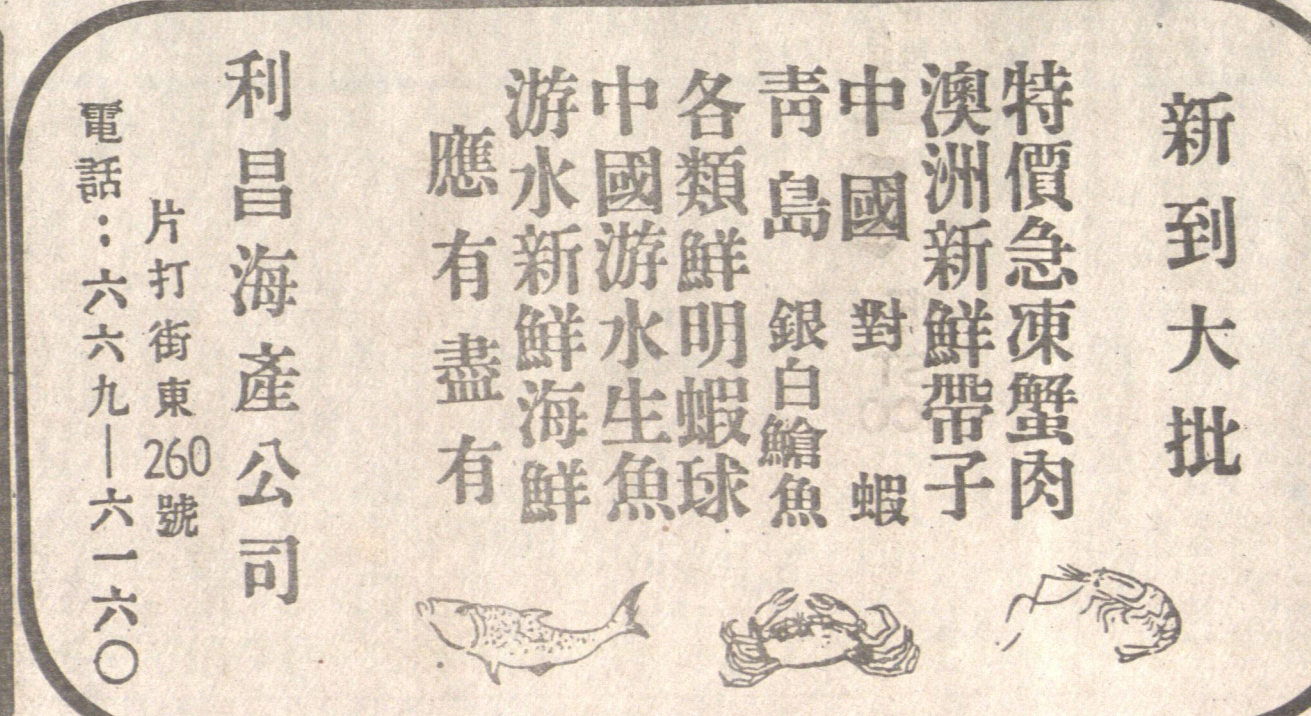 新到大批
特價急凍蟹肉
澳洲新鮮帶子
中國對蝦
青島銀白鱠魚
各類鮮明蝦球
中國游水生魚
游水新鮮海鮮
應有盡有
利昌海產公司
片打街東260號
電話：六六九—六一六〇